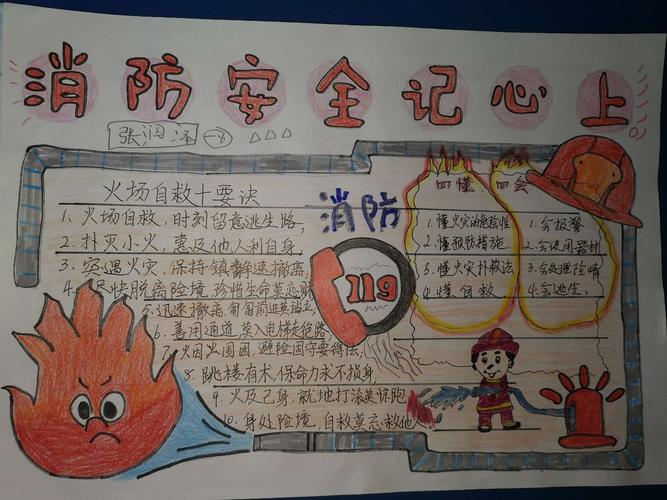 消防安全记心上
张润泽 一8
火场自救十要诀
1、火场自救,时刻留意逃生路,
2、扑灭小火,惠及他人利自身,
3、突遇火灾,保持镇静速撤离,
4、尽快脱离险境,珍惜生命莫恋财
5、迅速撤离,匍匐前进莫站立,
6、善用通道,莫入电梯走绝路,
7、火因火围困,避险固守要得法,
8、跳楼有术,保命力求不损身,
9、火及己身,就地打滚莫惊跑
10、身处险境,自救莫忘救他人
消防
119
四懂
1.懂火灾的危险性
2.懂预防措施
3.懂火灾扑救法
4.懂自救
四会
1.会报警
2.会使用器材
3.会处理险情
4.会逃生。